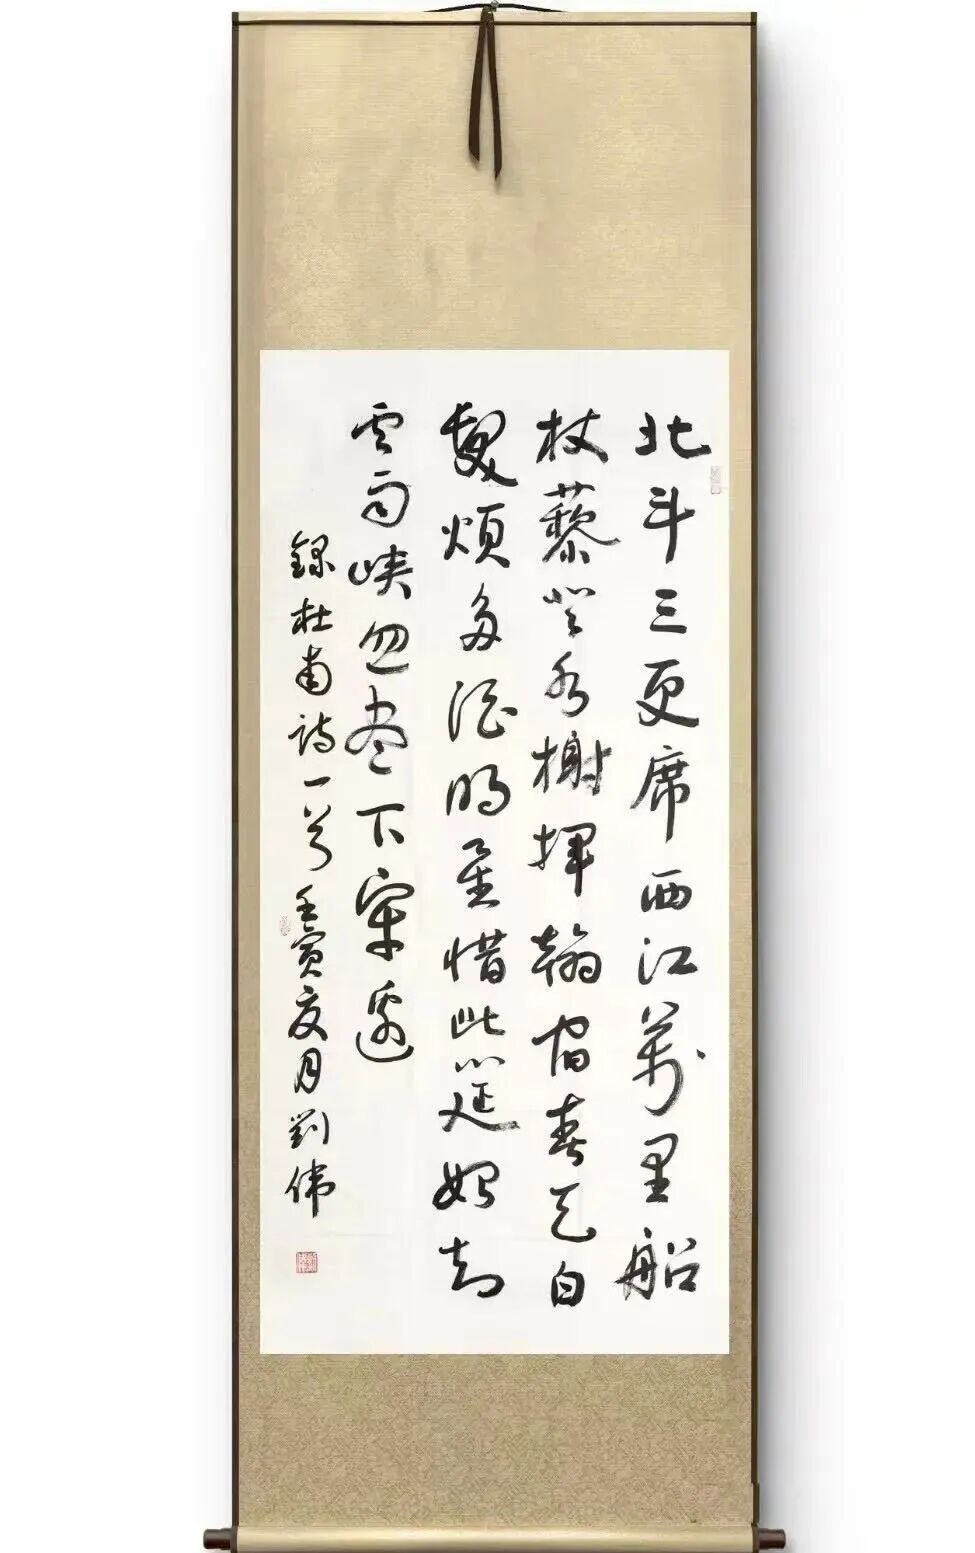 北斗三更席西江萬里船
杖藜登水榭揮翰宿春天白
髮煩多酒明星惜此筵始知
云雨峡忽尽下牢邊
錄杜甫詩一首壬寅夏月劉伟